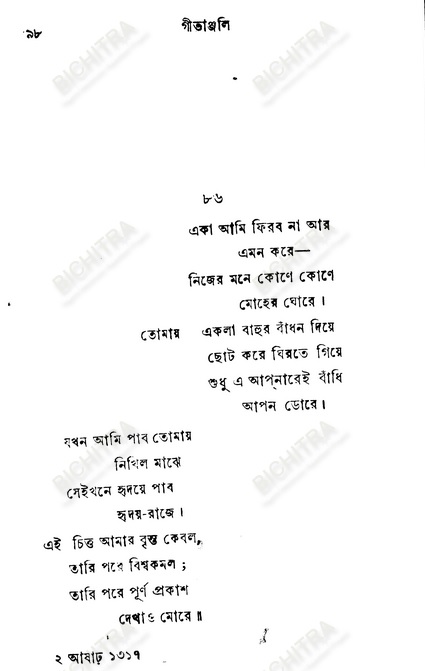 ৯৮
গীতাঞ্জলি
৮৬
একা আমি ফিরব না আর
এমন করে—
নিজের মনে কোণে কোণে
মোহের ঘোরে।
তোমায় একলা বাহুর বাঁধন দিয়ে
ছোট করে ঘিরতে গিয়ে
শুধু এ আপ্‌নারেই বাঁধি
আপন ডোরে।
যখন আমি পাব তোমায়
নিখিল মাঝে
সেইখনে হৃদয়ে পাব
হৃদয়-রাজে।
এই চিত্ত আমার বৃন্ত কেবল,
তারি পরে বিশ্বকমল;
তারি পরে পূর্ণ প্রকাশ
দেখাও মোরে॥
২ আষাঢ় ১৩১৭
BICHITRA
BICHITRA
BICHITRA
BICHITRA
BICHITRA
BICHITRA